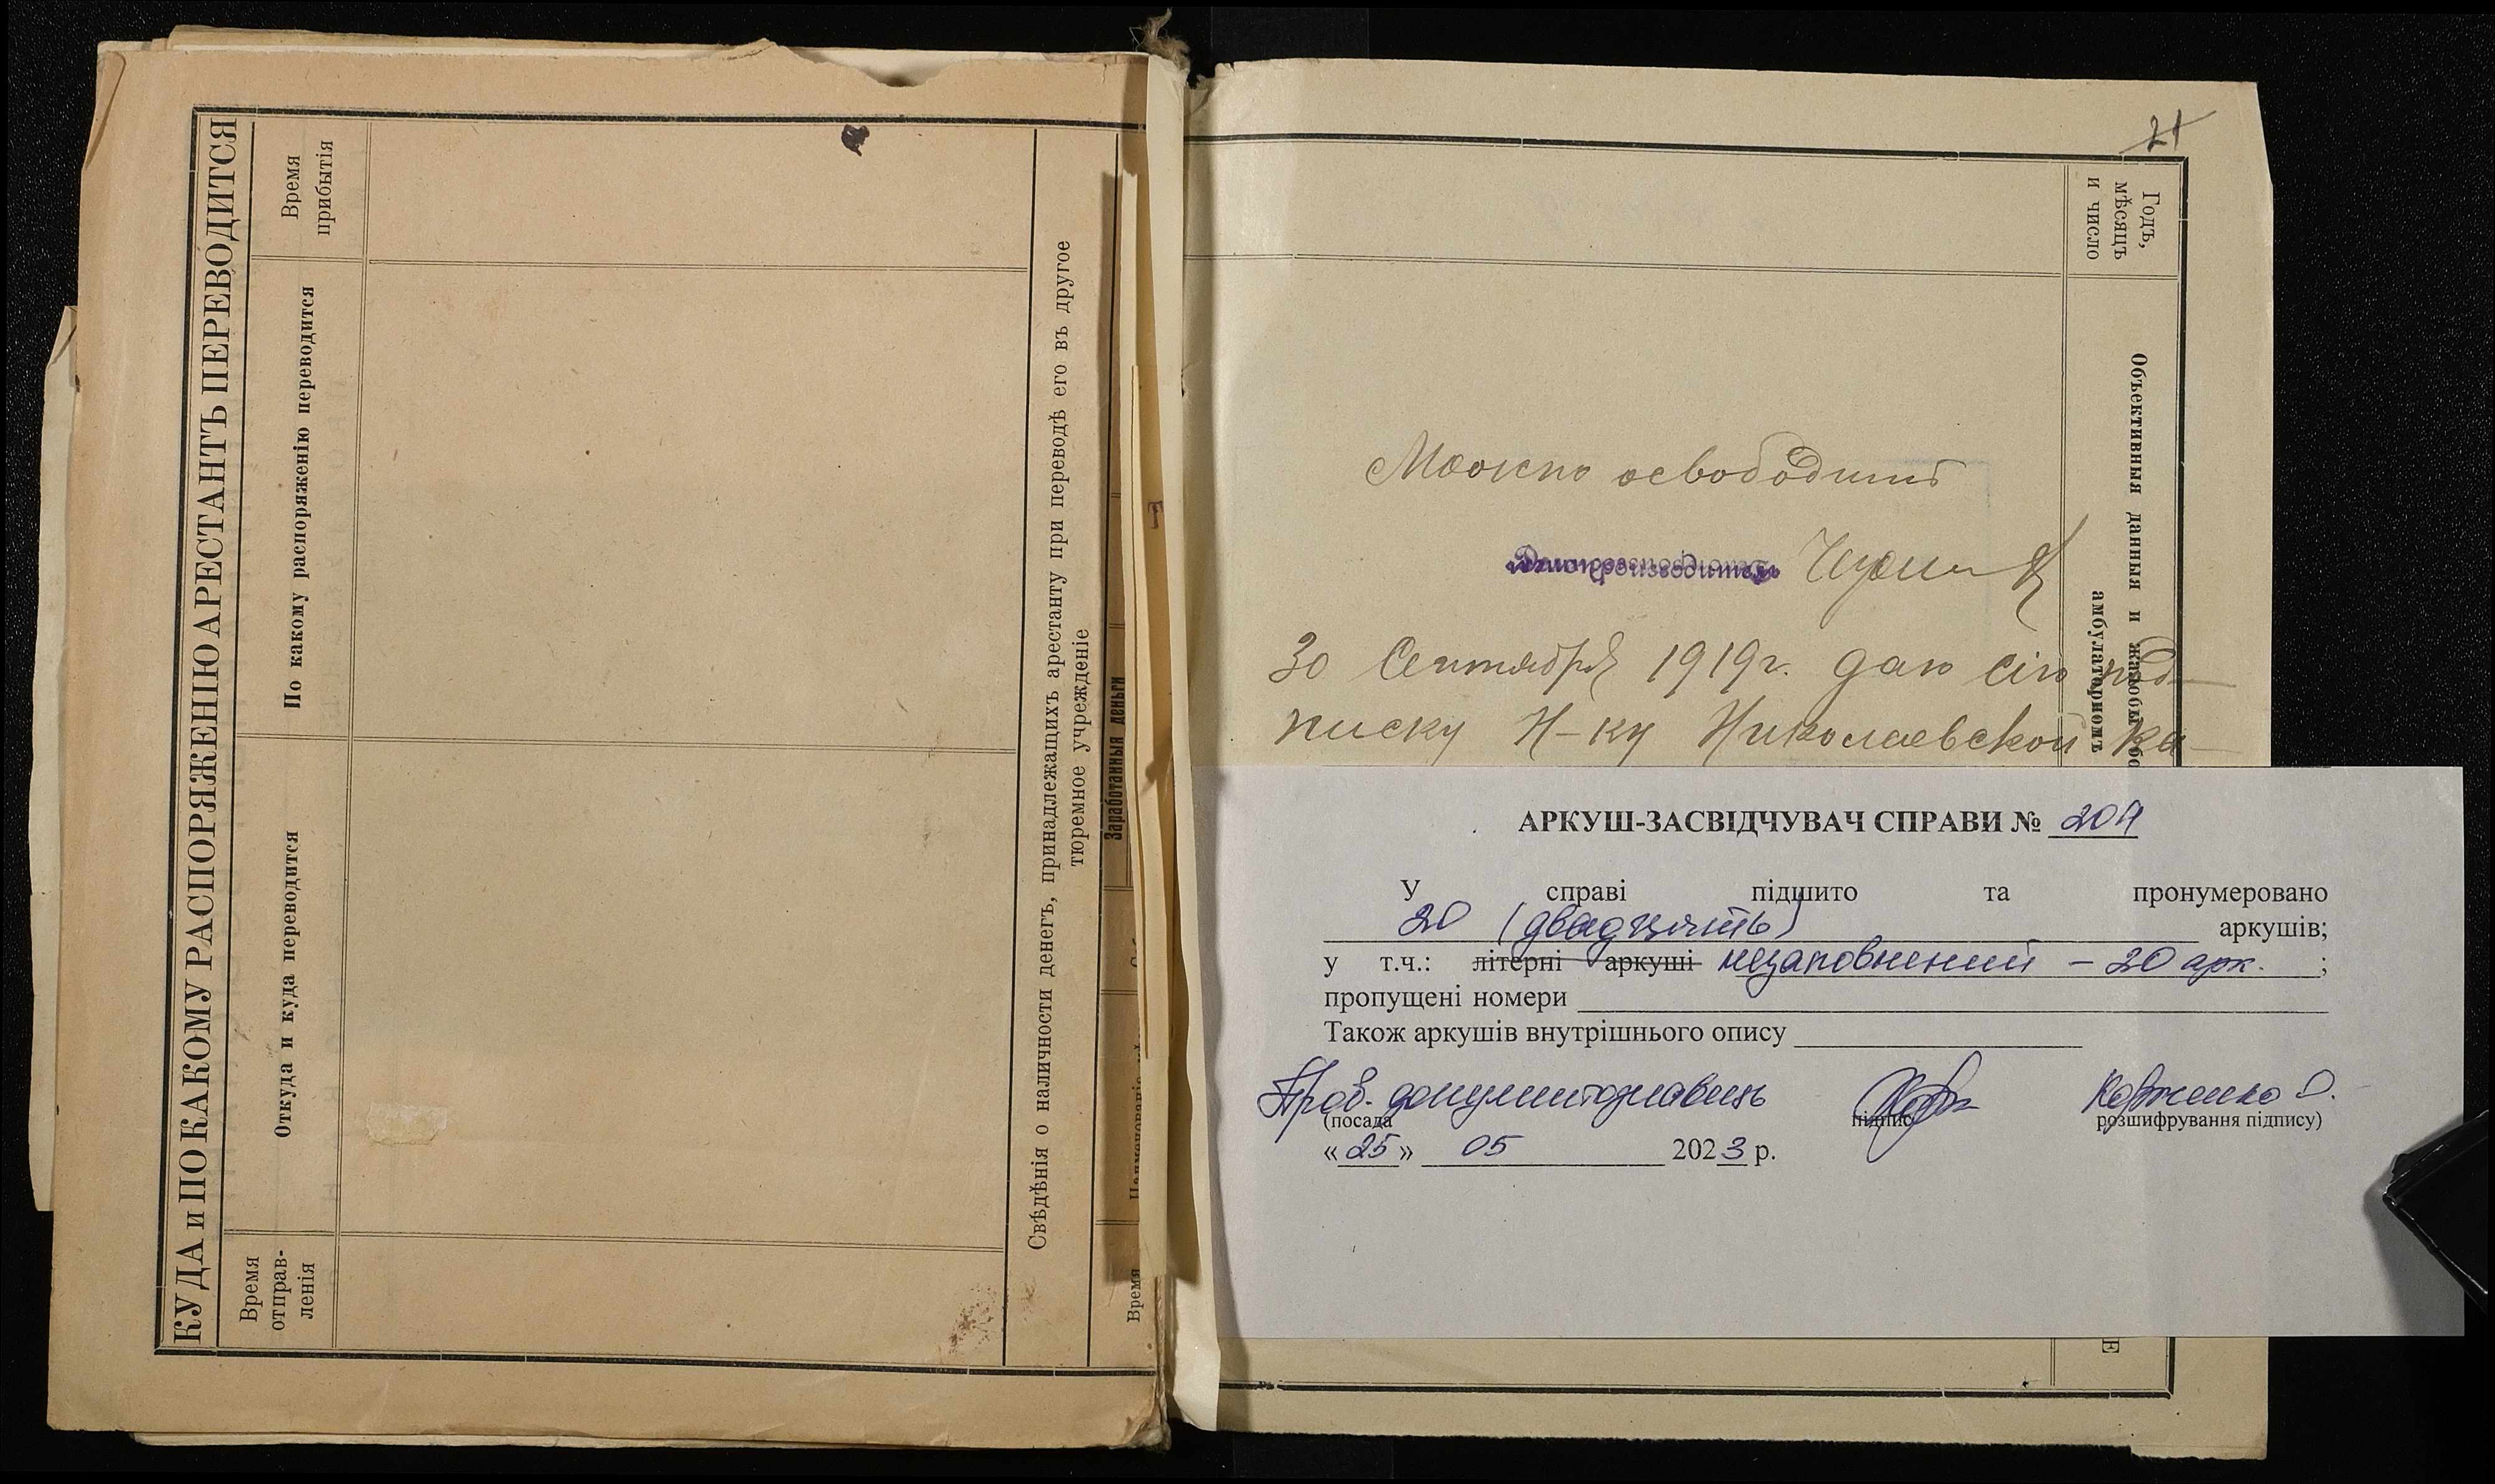 КУДА и ПО КАКОМУ РАСПОРЯЖЕНІЮ АРЕСТАНТЪ ПЕРЕВОДИТСЯ
Время
отправ-
ленія
Откуда и куда переводится
По какому распоряженію переводится
Время
прибытія
Свѣдѣнія о наличности денегъ, принадлежащихъ арестанту при переводѣ его въ другое
тюремное учрежденіе
Время
Заработанныя деньги
21
Годъ,
мѣсяцъ
и число
Объективныя данныя и жалобы
амбулаторномъ
Можно освободить
Делопроизводитель
30 Сентября 1919г. даю сію под-
писку Н-ку Николаевской ка-
АРКУШ-ЗАСВІДЧУВАЧ СПРАВИ № 204
У справі підшито та пронумеровано
20 (двадцять) аркушів;
у т.ч.: літерні аркуші незаповнений – 20 арк. ;
пропущені номери
Також аркушів внутрішнього опису
Пров. документознавець
(посада підпис розшифрування підпису)
«25» 05 2023 р.
Е